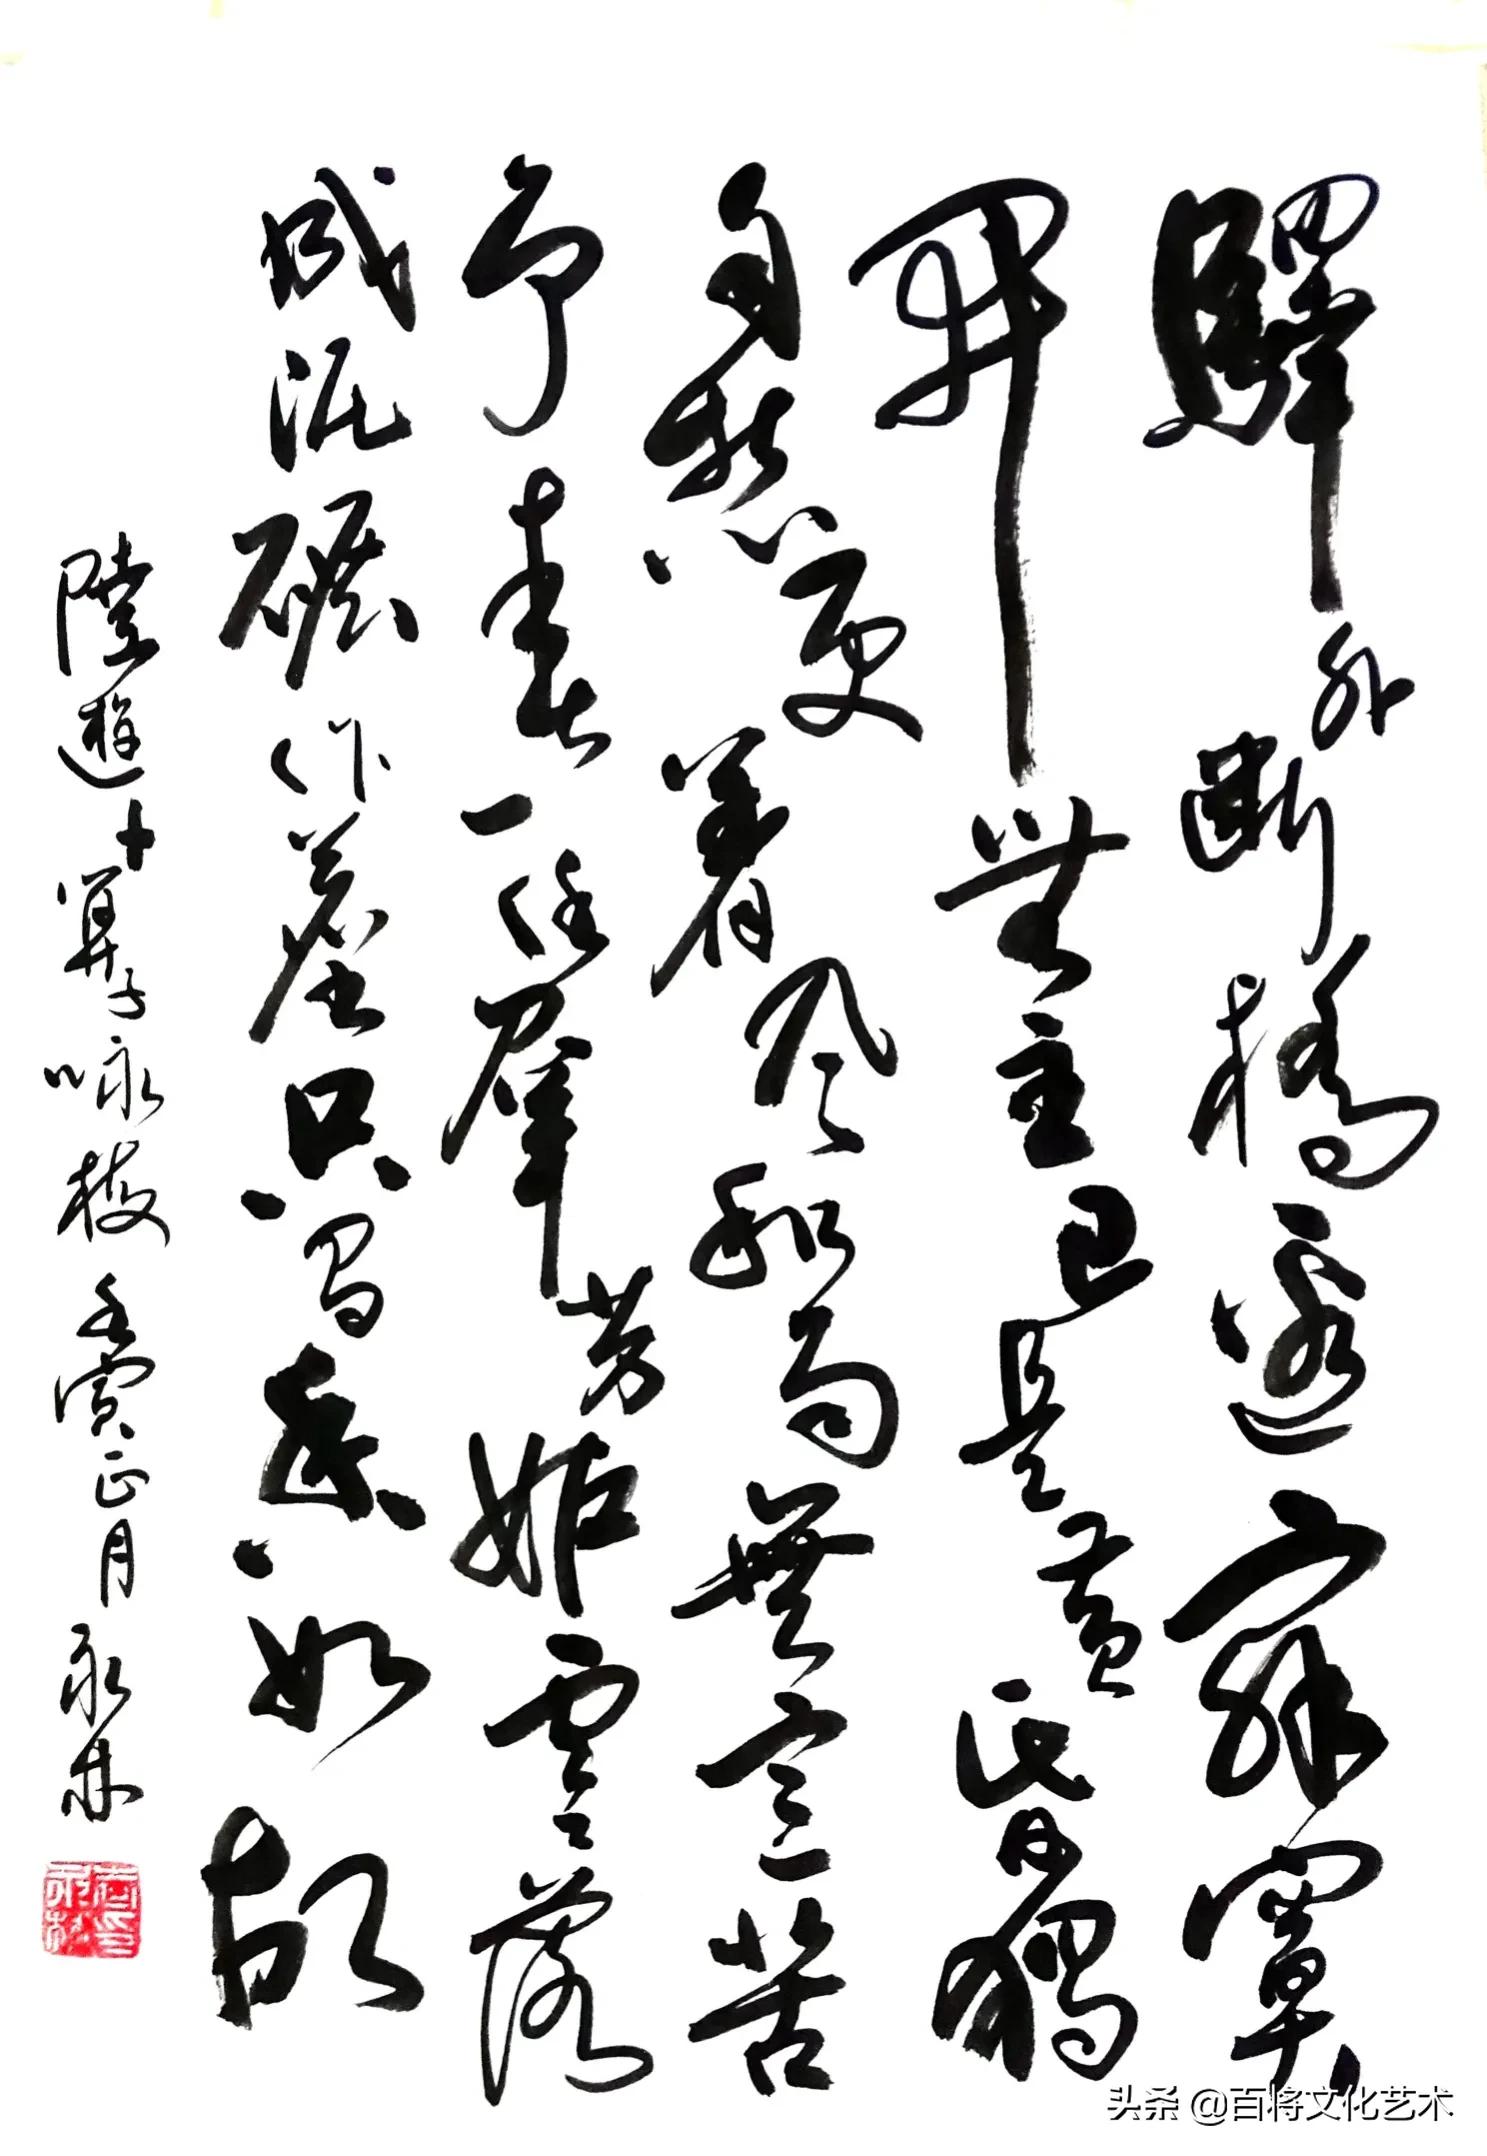 驛外斷橋邊寂寞
開無主已是黃昏獨
自愁更着風和雨無意苦
爭春一任羣芳妬零落
成泥碾作塵只有香如故
陸遊卜算子咏梅 壬寅正月 永林
头条 @百将文化艺术